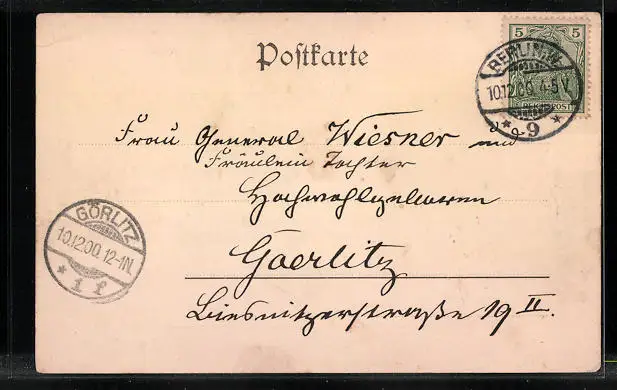 Postkarte
5 5
REICHSPOST
BERLIN W.
10.12.00. 4-5 V.
* 9
Frau General Wiesner und
Fräulein Tochter
Hochwohlgeboren
Goerlitz
Biesnitzerstraße 19 II.
GÖRLITZ
10.12.00. 12-1N.
* 1 f